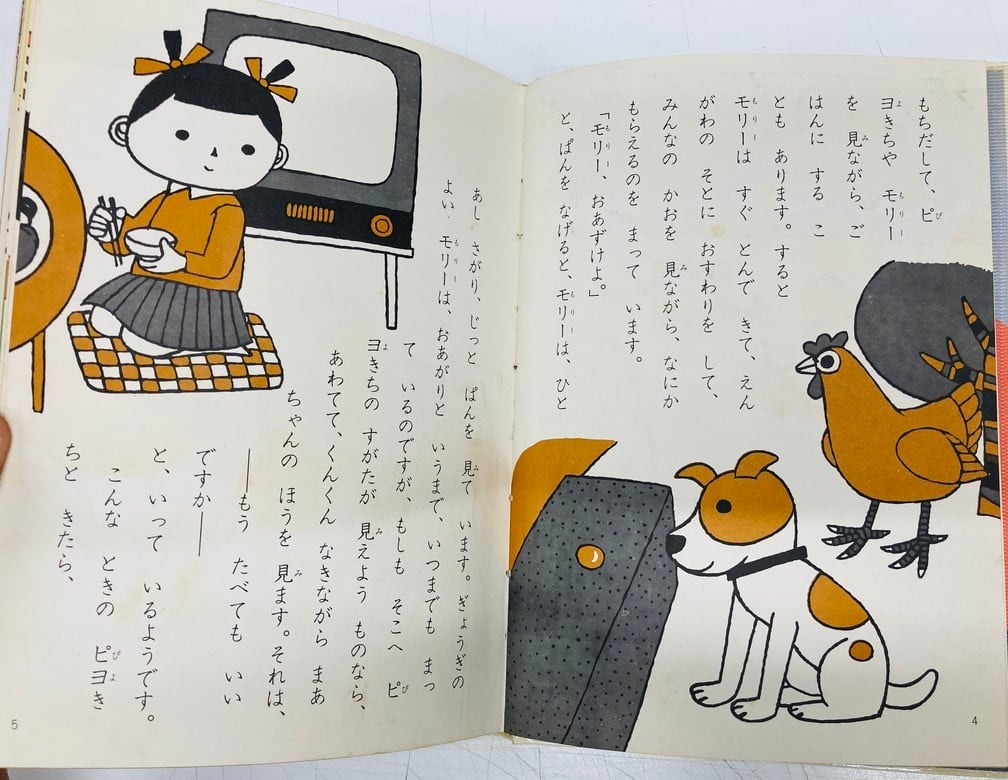 もちだして、ピ
ヨきちや モリー
を 見ながら、ご
はんに する こ
とも あります。すると
モリーは すぐ とんで きて、えん
がわの そとに おすわりを して、
みんなの かおを 見ながら、なにか
もらえるのを まって います。
「モリー、おあずけよ。」
と、ぱんを なげると、モリーは、ひと
4
あし さがり、じっと ぱんを 見て います。ぎょうぎの
よい モリーは、おあがりと いうまで、いつまでも まっ
て いるのですが、もしも そこへ ピ
ヨきちの すがたが 見えよう ものなら、
あわてて、くんくん なきながら まあ
ちゃんの ほうを 見ます。それは、
――もう たべても いい
ですか――
と、いって いるようです。
こんな ときの ピヨき
ちと きたら、
5